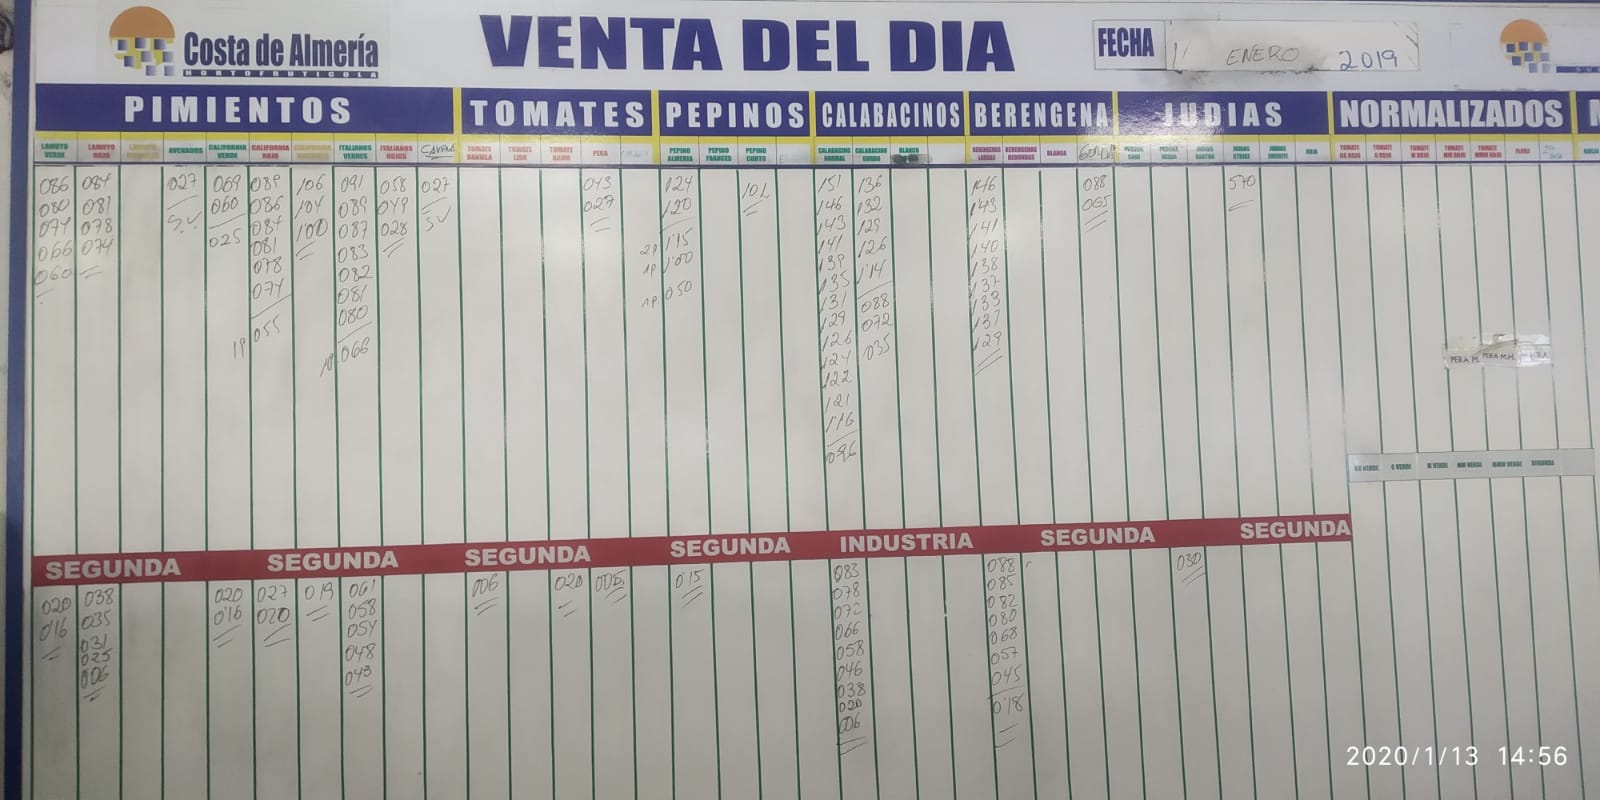 Costa de Almería
HORTOFRUTICOLA
VENTA DEL DIA
FECHA
ENERO 2019
PIMIENTOS TOMATES PEPINOS CALABACINOS BERENGENA JUDIAS NORMALIZADOS
LAMUYO VERDE LAMUYO ROJO ASURADOS CALIFORNIA VERDE CALIFORNIA ROJO ITALIANOS VERDES ITALIANOS ROJOS
TOMATE DANIELA TOMATE LISO TOMATE RAMO PERA
PEPINO ALMERIA PEPINO FRANCES PEPINO CORTO
CALABACINO NORMAL CALABACINO GORDO BLANCO
BERENGENA LARGAS BERENGENA REDONDAS BLANCA
086 084 027 069 089 106 091 058 027 043 124 101 151 136 146 088 570
080 081 S.V. 060 086 104 089 049 SV 027 120 146 132 143 065
074 078 025 084 100 087 028 143 129 141
066 074 081 083 2P 1'15 141 126 140
060 078 082 1P 1'00 139 1'14 138
074 081 1P 050 135 088 137
1P 055 080 131 072 133
1P 066 129 035 131
126 129
124
122
121
1'16
096
PERA M. PERA M.M.
GG VERDE G VERDE M VERDE MM VERDE MMM VERDE SEGUNDA
SEGUNDA SEGUNDA SEGUNDA SEGUNDA INDUSTRIA SEGUNDA SEGUNDA
020 038 020 027 019 061 006 020 005 015 083 088 030
016 035 016 020 058 078 085
031 054 072 082
025 048 066 080
006 043 058 068
046 057
038 045
020 0'18
006
2020/1/13 14:56